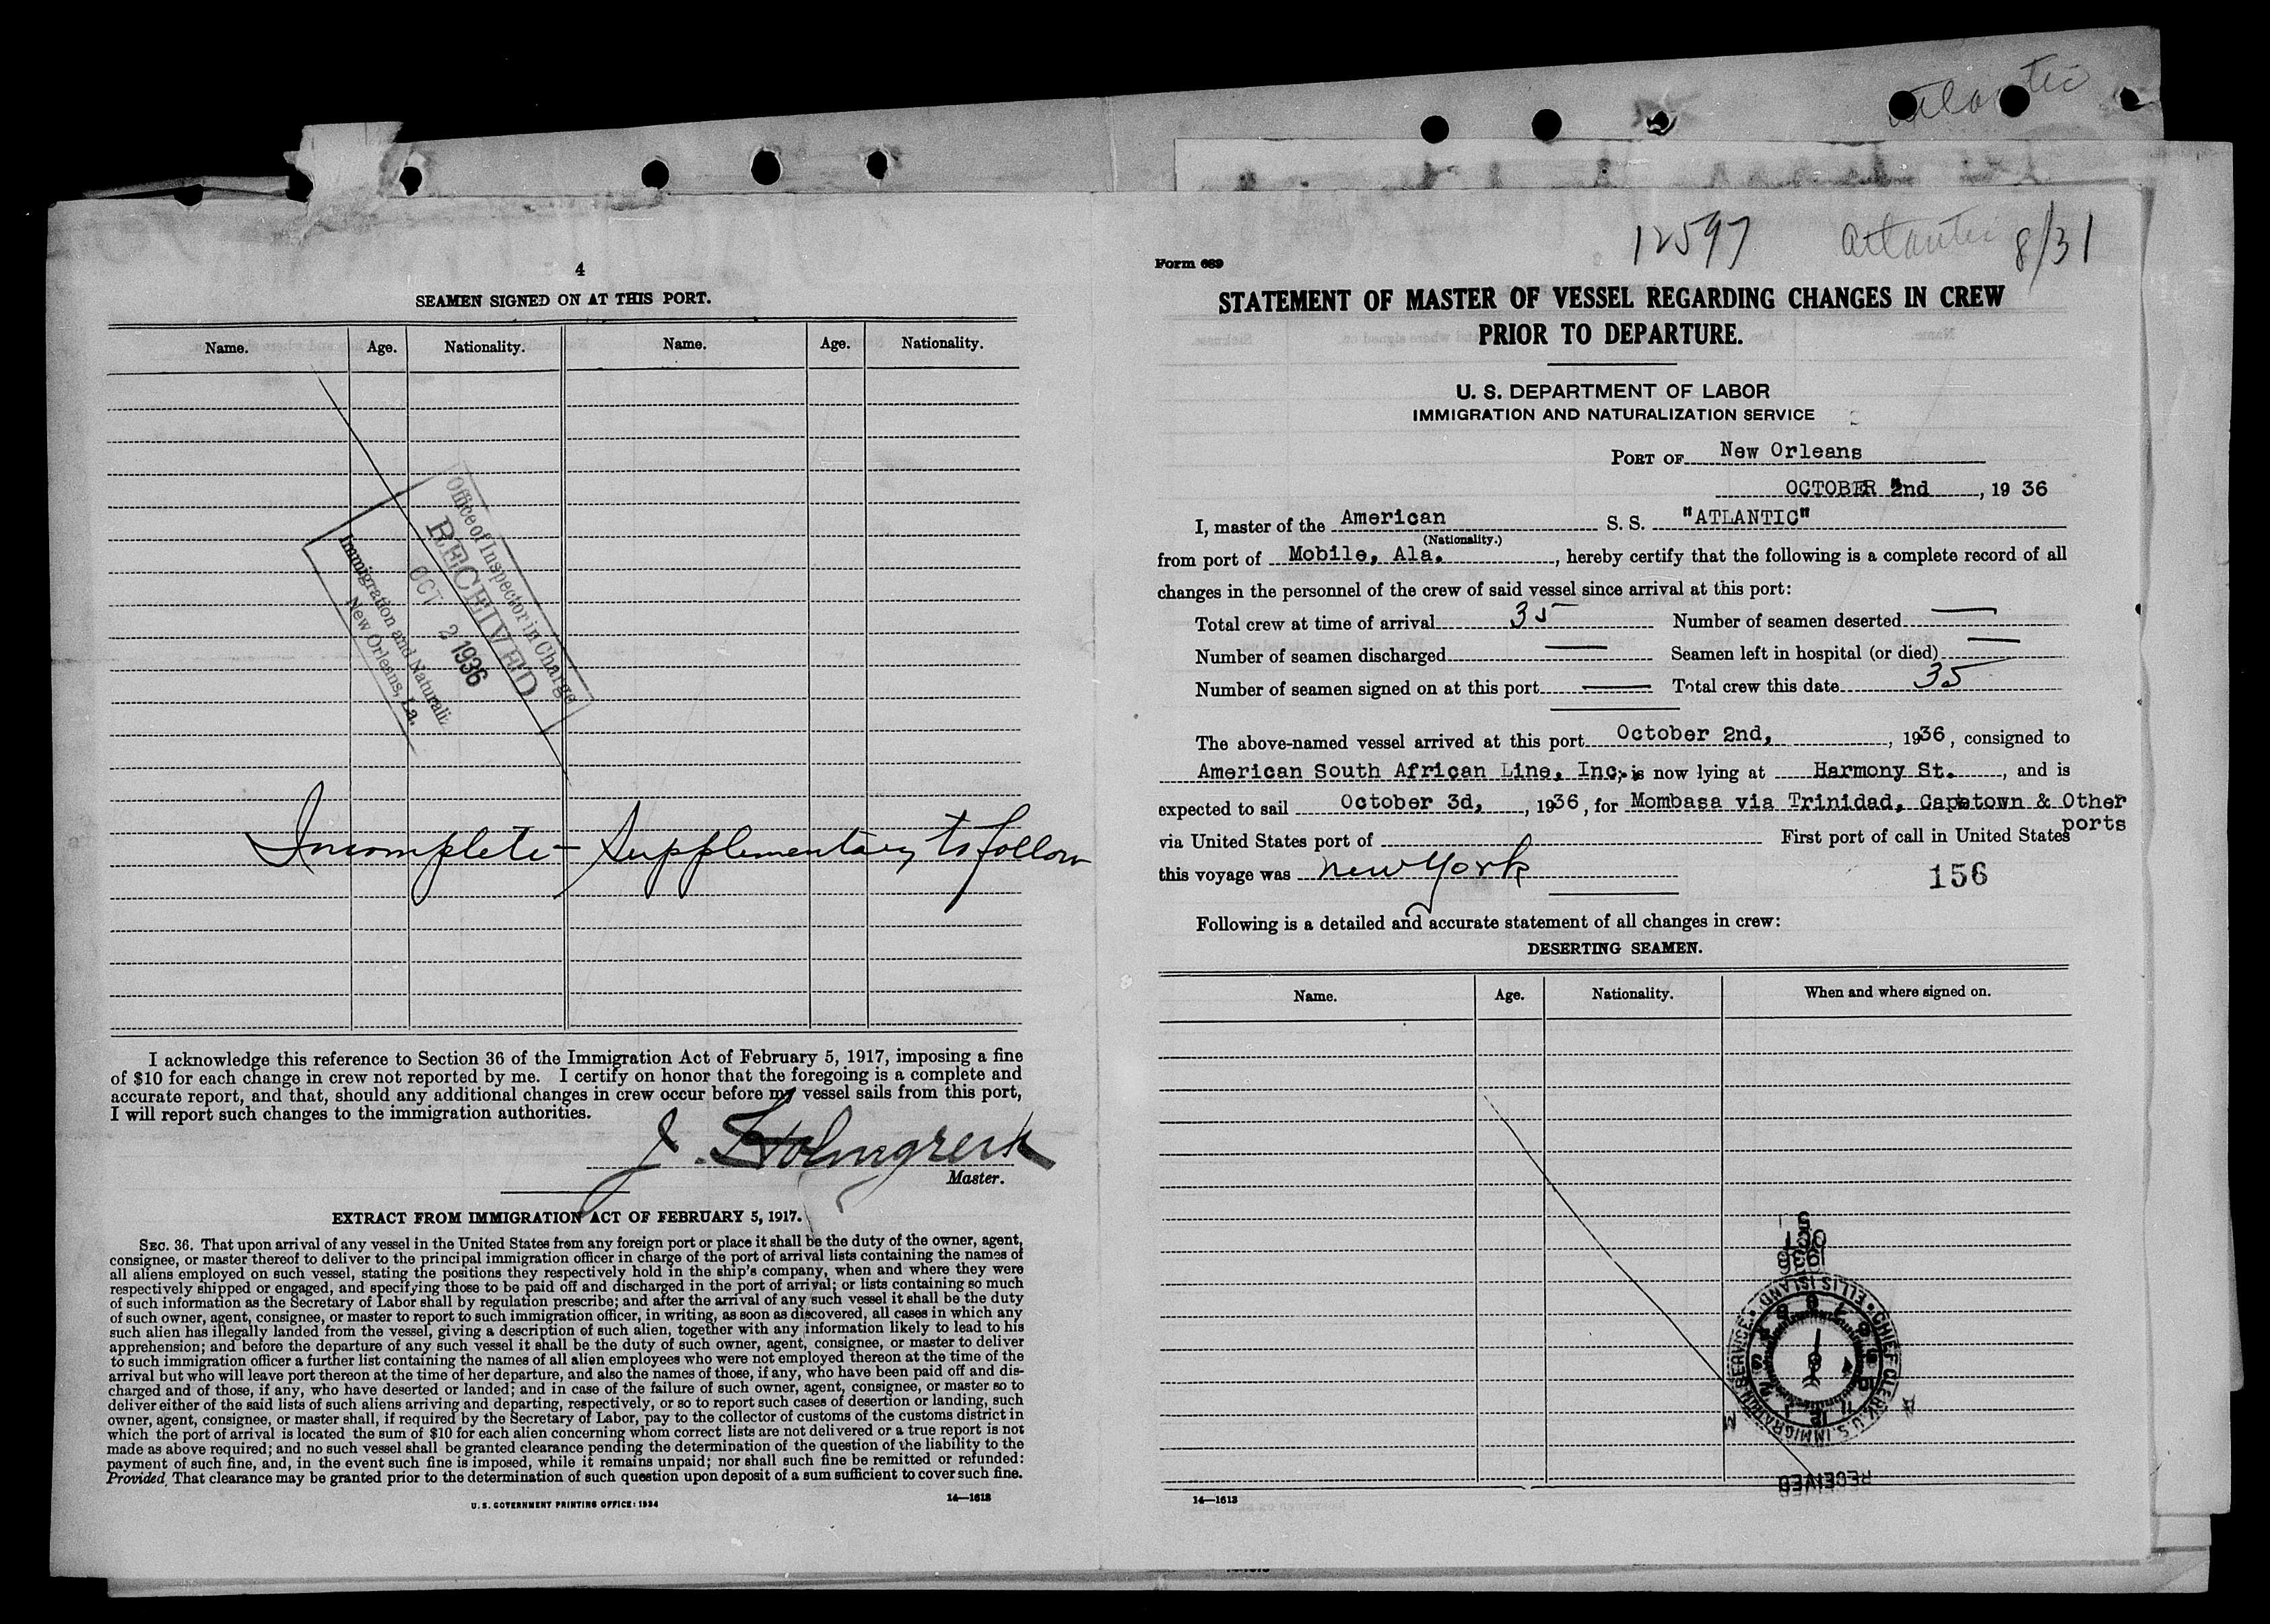 Atlantic
4
SEAMEN SIGNED ON AT THIS PORT.
Name. Age. Nationality. Name. Age. Nationality.
Office of Inspector in Charge
RECEIVED
OCT 2 1936
Immigration and Naturali
New Orleans, La.
Incomplete - Supplementary to follow
I acknowledge this reference to Section 36 of the Immigration Act of February 5, 1917, imposing a fine
of $10 for each change in crew not reported by me. I certify on honor that the foregoing is a complete and
accurate report, and that, should any additional changes in crew occur before my vessel sails from this port,
I will report such changes to the immigration authorities.
J. Holmgren
Master.
EXTRACT FROM IMMIGRATION ACT OF FEBRUARY 5, 1917.
SEC. 36. That upon arrival of any vessel in the United States from any foreign port or place it shall be the duty of the owner, agent,
consignee, or master thereof to deliver to the principal immigration officer in charge of the port of arrival lists containing the names of
all aliens employed on such vessel, stating the positions they respectively hold in the ship's company, when and where they were
respectively shipped or engaged, and specifying those to be paid off and discharged in the port of arrival; or lists containing so much
of such information as the Secretary of Labor shall by regulation prescribe; and after the arrival of any such vessel it shall be the duty
of such owner, agent, consignee, or master to report to such immigration officer, in writing, as soon as discovered, all cases in which any
such alien has illegally landed from the vessel, giving a description of such alien, together with any information likely to lead to his
apprehension; and before the departure of any such vessel it shall be the duty of such owner, agent, consignee, or master to deliver
to such immigration officer a further list containing the names of all alien employees who were not employed thereon at the time of the
arrival but who will leave port thereon at the time of her departure, and also the names of those, if any, who have been paid off and dis-
charged and of those, if any, who have deserted or landed; and in case of the failure of such owner, agent, consignee, or master so to
deliver either of the said lists of such aliens arriving and departing, respectively, or so to report such cases of desertion or landing, such
owner, agent, consignee, or master shall, if required by the Secretary of Labor, pay to the collector of customs of the customs district in
which the port of arrival is located the sum of $10 for each alien concerning whom correct lists are not delivered or a true report is not
made as above required; and no such vessel shall be granted clearance pending the determination of the question of the liability to the
payment of such fine, and, in the event such fine is imposed, while it remains unpaid; nor shall such fine be remitted or refunded:
Provided, That clearance may be granted prior to the determination of such question upon deposit of a sum sufficient to cover such fine.
U. S. GOVERNMENT PRINTING OFFICE: 1934 14—1613
12597 Atlantic 8/31
Form 689
STATEMENT OF MASTER OF VESSEL REGARDING CHANGES IN CREW
PRIOR TO DEPARTURE.
U. S. DEPARTMENT OF LABOR
IMMIGRATION AND NATURALIZATION SERVICE
PORT OF New Orleans
OCTOBER 2nd, 1936
I, master of the American S. S. "ATLANTIC"
(Nationality.)
from port of Mobile, Ala., hereby certify that the following is a complete record of all
changes in the personnel of the crew of said vessel since arrival at this port:
Total crew at time of arrival 35 Number of seamen deserted —
Number of seamen discharged — Seamen left in hospital (or died) —
Number of seamen signed on at this port — Total crew this date 35
The above-named vessel arrived at this port October 2nd, 1936, consigned to
American South African Line, Inc, is now lying at Harmony St., and is
expected to sail October 3d, 1936, for Mombasa via Trinidad, Capetown & Other
ports
via United States port of First port of call in United States
this voyage was New York
156
Following is a detailed and accurate statement of all changes in crew:
DESERTING SEAMEN.
Name. Age. Nationality. When and where signed on.
5
OCT
1936
CHIEF CLERK, U.S. IMMIGRATION SERVICE • ELLIS ISLAND •
7 8 9 10 11 12 1
A M
RECEIVED
14—1613